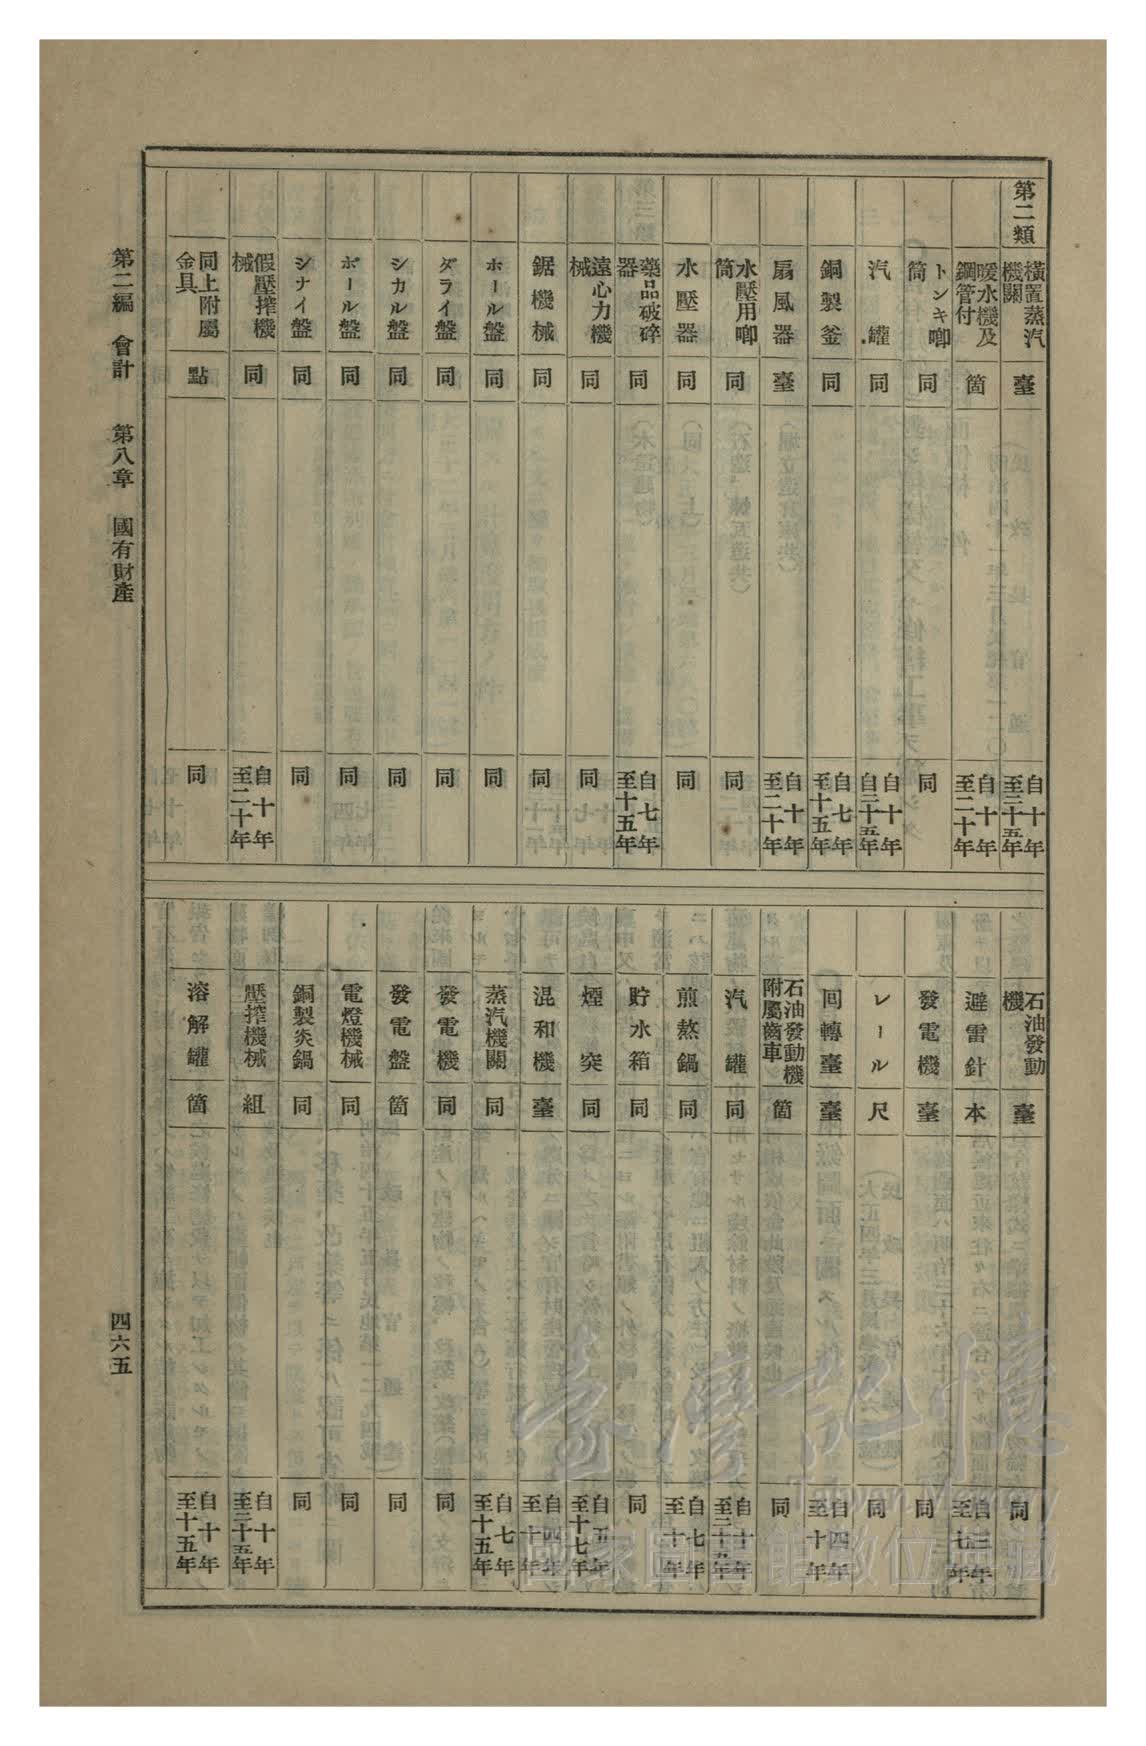 第二類
橫置蒸汽機關 臺 自十年至二十五年
暖水機及鋼管付 箇 自十年至二十年
トンキ喞筒 同 同
汽罐 同 自十年自二十五年
銅製釜 同 自七年至十五年
扇風器 臺 自十年至二十年
水壓用喞筒 同 同
水壓器 同 同
藥品破碎器 同 自七年至十五年
遠心力機械 同 同
鋸機械 同 同
ホール盤 同 同
ダライ盤 同 同
シカル盤 同 同
ポール盤 同 同
シナイ盤 同 同
假壓搾機械 同 自十年至二十年
同上附屬金具 點 同
石油發動機 臺 同
避雷針 本 自三年至七年
發電機 臺 同
レール 尺 同
囘轉臺 臺 自四年至十年
石油發動機附屬齒車 箇 同
汽罐 同 自十年至二十五年
煎熬鍋 同 自七年至十年
貯水箱 同 同
煙突 同 自五年至十七年
混和機 臺 自四年至十年
蒸汽機關 同 自七年至十五年
發電機 同 同
發電盤 箇 同
電燈機械 同 同
銅製炎鍋 同 同
壓搾機械 組 自十年至二十五年
溶解罐 箇 自十年至十五年
第二編 會計 第八章 國有財產
四六五
臺灣記憶
Taiwan Memory
國家圖書館數位典藏